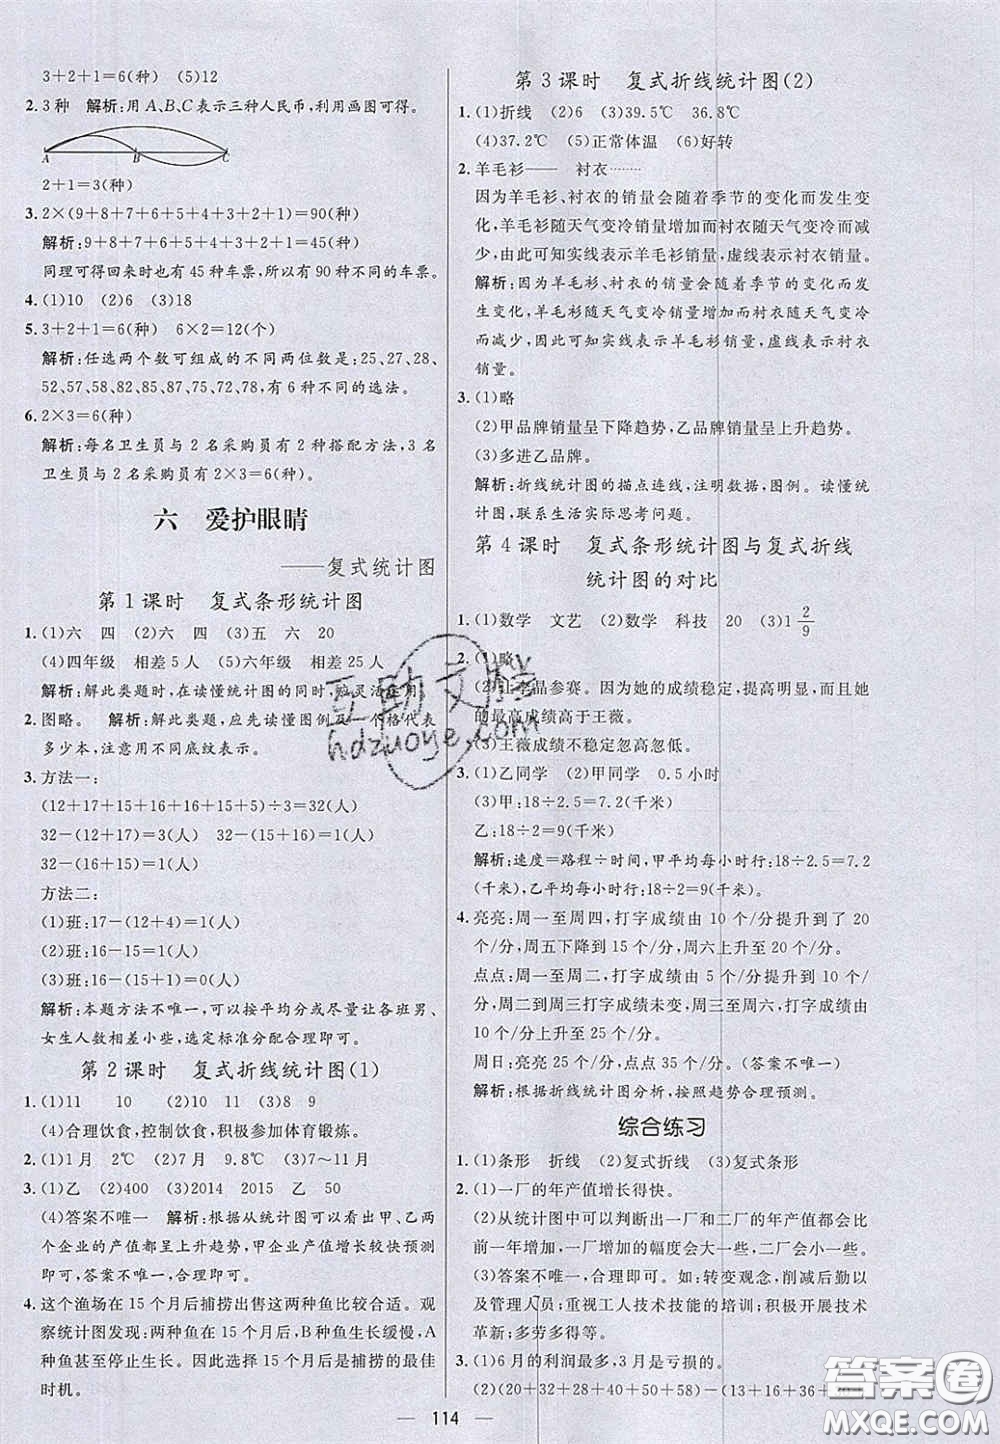 3+2+1=6(种)　(5)12
2. 3种　解析:用A、B、C表示三种人民币,利用画图可得。
A　B　C
2+1=3(种)
3. 2×(9+8+7+6+5+4+3+2+1)=90(种)
解析:9+8+7+6+5+4+3+2+1=45(种)
同理可得回来时也有45种车票,所以有90种不同的车票。
4. (1)10　(2)6　(3)18
5. 3+2+1=6(种)　6×2=12(个)
解析:任选两个数可组成的不同两位数是:25,27,28,
52,57,58,82,85,87,72,75,78,有6种不同的选法。
6. 2×3=6(种)
解析:每名卫生员与2名采购员有2种搭配方法,3名
卫生员与2名采购员有2×3=6(种)。
六　爱护眼睛
——复式统计图
第1课时　复式条形统计图
1. (1)六　四　(2)六　四　(3)五　六　20
(4)四年级　相差5人　(5)六年级　相差25人
解析:解此类题时,在读懂统计图的同时,应灵活应用。
2. 图略。　解析:解此类题,应先读懂图例及一个格代表
多少本,注意用不同底纹表示。
3. 方法一:
(12+17+15+16+16+15+5)÷3=32(人)
32-(12+17)=3(人)　32-(15+16)=1(人)
32-(16+15)=1(人)
方法二:
(1)班:17-(12+4)=1(人)
(2)班:16-15=1(人)
(3)班:16-(15+1)=0(人)
解析:本题方法不唯一,可以按平均分或尽量让各班男、
女生人数相差小些,选定标准分配合理即可。
第2课时　复式折线统计图(1)
1. (1)11　10　(2)10　11　(3)8　9
(4)合理饮食,控制饮食,积极参加体育锻炼。
2. (1)1月　2℃　(2)9.8℃　(3)7～11月
3. (1)乙　(2)400　(3)2014　2015　乙　50
(4)答案不唯一　解析:根据从统计图可以看出甲、乙两
个企业的产值都呈上升趋势,甲企业产值增长较快预测
即可,答案不唯一,合理即可。
4. 这个渔场在15个月后捕捞出售这两种鱼比较合适。观
察统计图发现:两种鱼在15个月后,B种鱼生长缓慢,A
种鱼甚至停止生长。因此选择15个月是捕捞的最佳
时机。
第3课时　复式折线统计图(2)
1. (1)折线　(2)6　(3)39.5℃　36.8℃
(4)37.2℃　(5)正常体温　(6)好转
2. 羊毛衫——　衬衣……
因为羊毛衫、衬衣的销量会随着季节的变化而发生变
化,羊毛衫随天气变冷销量增加而衬衣随天气变冷而减
少,由此可知实线表示羊毛衫销量,虚线表示衬衣销量。
解析:因为羊毛衫、衬衣的销量会随着季节的变化而发
生变化,羊毛衫随天气变冷销量增加而衬衣随天气变冷
而减少,因此可知实线表示羊毛衫销量,虚线表示衬衣
销量。
3. (1)略
(2)甲品牌销量呈下降趋势,乙品牌销量呈上升趋势。
(3)多进乙品牌。
解析:折线统计图的描点连线,注明数据,图例。读懂统
计图,联系生活实际思考问题。
第4课时　复式条形统计图与复式折线
统计图的对比
1. (1)数学　文艺　(2)数学　科技　20　(3)1 2/9
2. (1)略
品参赛。因为她的成绩稳定,提高明显,而且她
的最高成绩高于王薇。
(3)王薇成绩不稳定忽高忽低。
3. (1)乙同学　(2)甲同学　0.5小时
(3)甲:18÷2.5=7.2(千米)
乙:18÷2=9(千米)
解析:速度=路程÷时间,甲平均每小时行:18÷2.5=7.2
(千米),乙平均每小时行:18÷2=9(千米)。
4. 亮亮:周一至周四,打字成绩由10个/分提升到了20
个/分,周五下降到15个/分,周六上升至20个/分。
点点:周一至周二,打字成绩由5个/分提升至10
个/分,周二到周三打字成绩未变,周三至周六,打字成绩
由10个/分上升至25个/分。
周日:亮亮25个/分,点点35个/分。(答案不唯一)
解析:根据折线统计图分析,按照趋势合理预测。
综合练习
1. (1)条形　折线　(2)复式折线　(3)复式条形
2. (1)一厂的年产值增长得快。
(2)从统计图中可以判断出一厂和二厂的年产值都会比
前一年增加,一厂增加的幅度会大一些,二厂会小一些。
(3)答案不唯一,合理即可。如:转变观念,削减后勤以
及管理人员;重视工人技术技能的培训;积极开展技术
革新;多劳多得等。
3. (1)6月的利润最多,3月是亏损的。
(2)(20+32+28+40+50+58)-(13+16+36+
114
互助文档
hdzuoye.com
答案圈
MXQE.COM